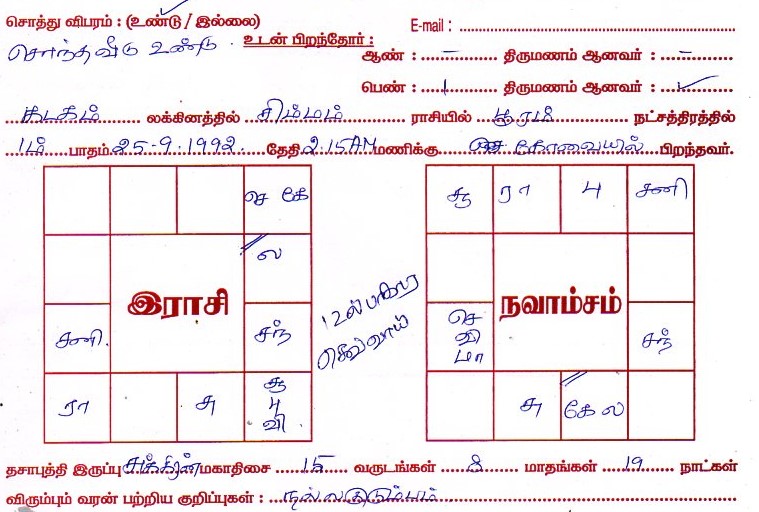 சொத்து விபரம் : (உண்டு / இல்லை)
E-mail :
சொந்த வீடு உண்டு . உடன் பிறந்தோர் :
ஆண் : – திருமணம் ஆனவர் : –
பெண் : 1 திருமணம் ஆனவர் : ✓
கடகம் லக்கினத்தில் சிம்மம் ராசியில் பூரம் நட்சத்திரத்தில்
1ம் பாதம் 25-9-1992 தேதி 2.15AM மணிக்கு கோவையில் பிறந்தவர்.
செ கே
ல
இராசி
சனி
சந்
ரா
சு
சூ
பு
வி
12ல்
செவ்வாய்
சூ ரா பு சனி
நவாம்சம்
செ
வி
மா
சந்
சு கே ல
தசாபுத்தி இருப்பு சுக்கிரன் மகாதிசை 15 வருடங்கள் 8 மாதங்கள் 19 நாட்கள்
விரும்பும் வரன் பற்றிய குறிப்புகள் : நல்ல குடும்பம்